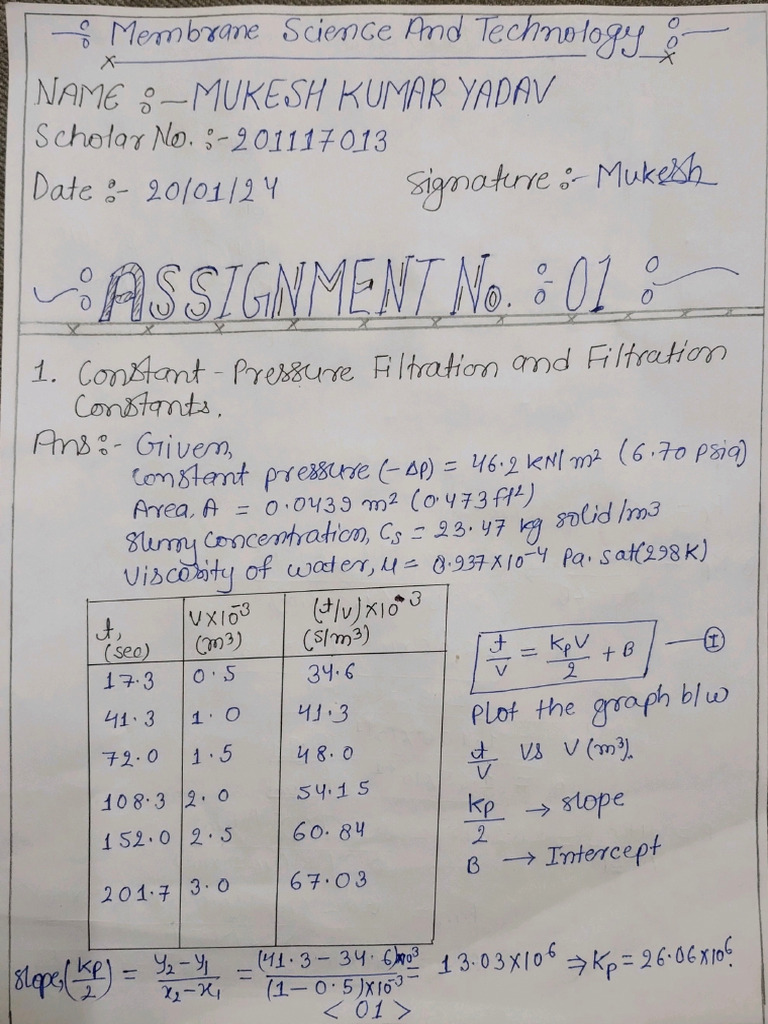 -: Membrane Science And Technology :-
NAME :- MUKESH KUMAR YADAV
Scholar No. :- 201117013
Date :- 20/01/24 Signature :- Mukesh
-: ASSIGNMENT No. : 01 :-
1. Constant-Pressure Filtration and Filtration
Constants.
Ans:- Given,
Constant pressure (-Δp) = 46.2 KN/m² (6.70 psia)
Area, A = 0.0439 m² (0.473 ft²)
Slurry Concentration, Cs = 23.47 kg solid/m3
Viscosity of water, μ = 8.937×10⁻⁴ Pa.s at (298K)
t, (sec) V×10⁻³ (m³) (t/v)×10⁻³ (s/m³)
17.3 0.5 34.6
41.3 1.0 41.3
72.0 1.5 48.0
108.3 2.0 54.15
152.0 2.5 60.84
201.7 3.0 67.03
t/V = KpV/2 + B —(I)
Plot the graph b/w
t/V vs V(m³).
Kp/2 → slope
B → Intercept
slope, (Kp/2) = y₂-y₁/x₂-x₁ = (41.3-34.6)×10³/(1-0.5)×10⁻³ = 13.03×10⁶ ⇒ Kp = 26.06×10⁶.
< 01 >